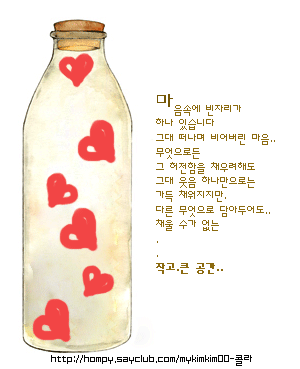 마음속에 빈자리가
하나 있습니다
그대 떠나며 비어버린 마음..
무엇으로든
그 허전함을 채우려해도
그대 웃음 하나만으로는
가득 채워지지만.
다른 무엇으로 담아두어도..
채울 수가 없는
.
.
작고.큰 공간..
http://hompy.sayclub.com/mykimkim00-콜라